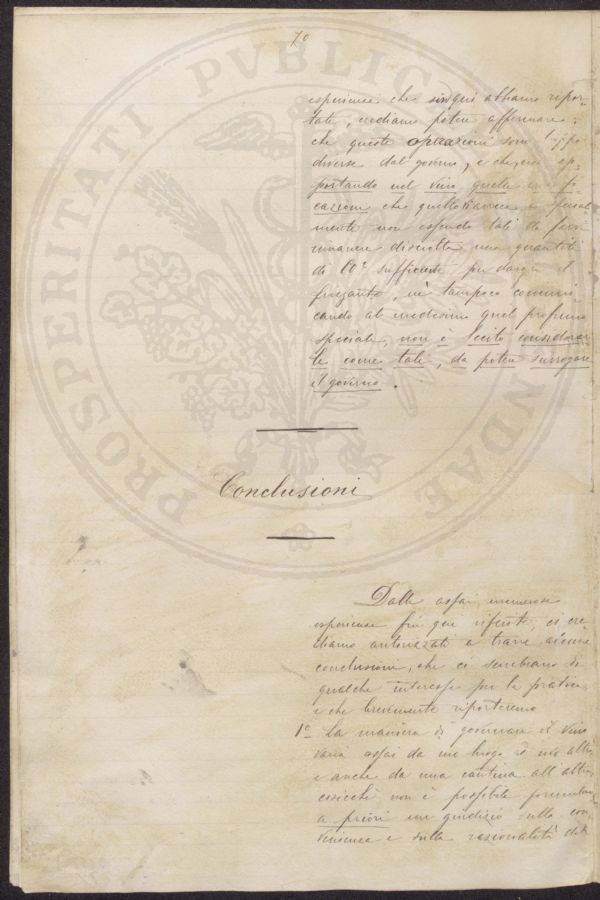 70
esperienze che sin qui abbiamo ripor-
tate, crediamo poter affermare:
che queste operazioni sono troppo
diverse dal governo, e che, non ap-
portando nel vino quelle modifi-
cazioni che quello induce, e special
mente non essendo tali da farvi
rimanere disciolta una quantità
di CO² sufficiente per dargli il
frizzante, nè tampoco comuni-
cando al medesimo quel profumo
speciale, non è lecito considerar
le come tale, da poter surrogare
il governo.
Conclusioni
Dalle assai numerose
esperienze fin qui riferite, ci cre
diamo autorizzati a trarre alcune
conclusioni, che ci sembrano di
qualche interesse per la pratica
e che brevemente riporteremo
1º La maniera di governare il vino
varia assai da un luogo ad un altro,
e anche da una cantina all'altra
cosicchè non è possibile formulare
a priori un giudizio sulla con-
venienza e sulla razionalità del
PROSPERITATI PVBLICAE